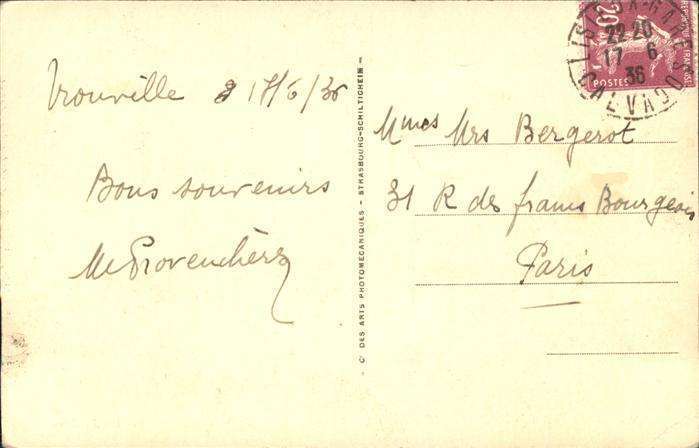 Trouville 17/6/36
Bons souvenirs
Provenchère
Cie DES ARTS PHOTOMECANIQUES - STRASBOURG-SCHILTIGHEIM -
20
POSTES
LISIEUX-GARE
22 20
17 6
36
CALVADOS
Mmes Mrs Bergerot
31 R des francs Bourgeois
Paris